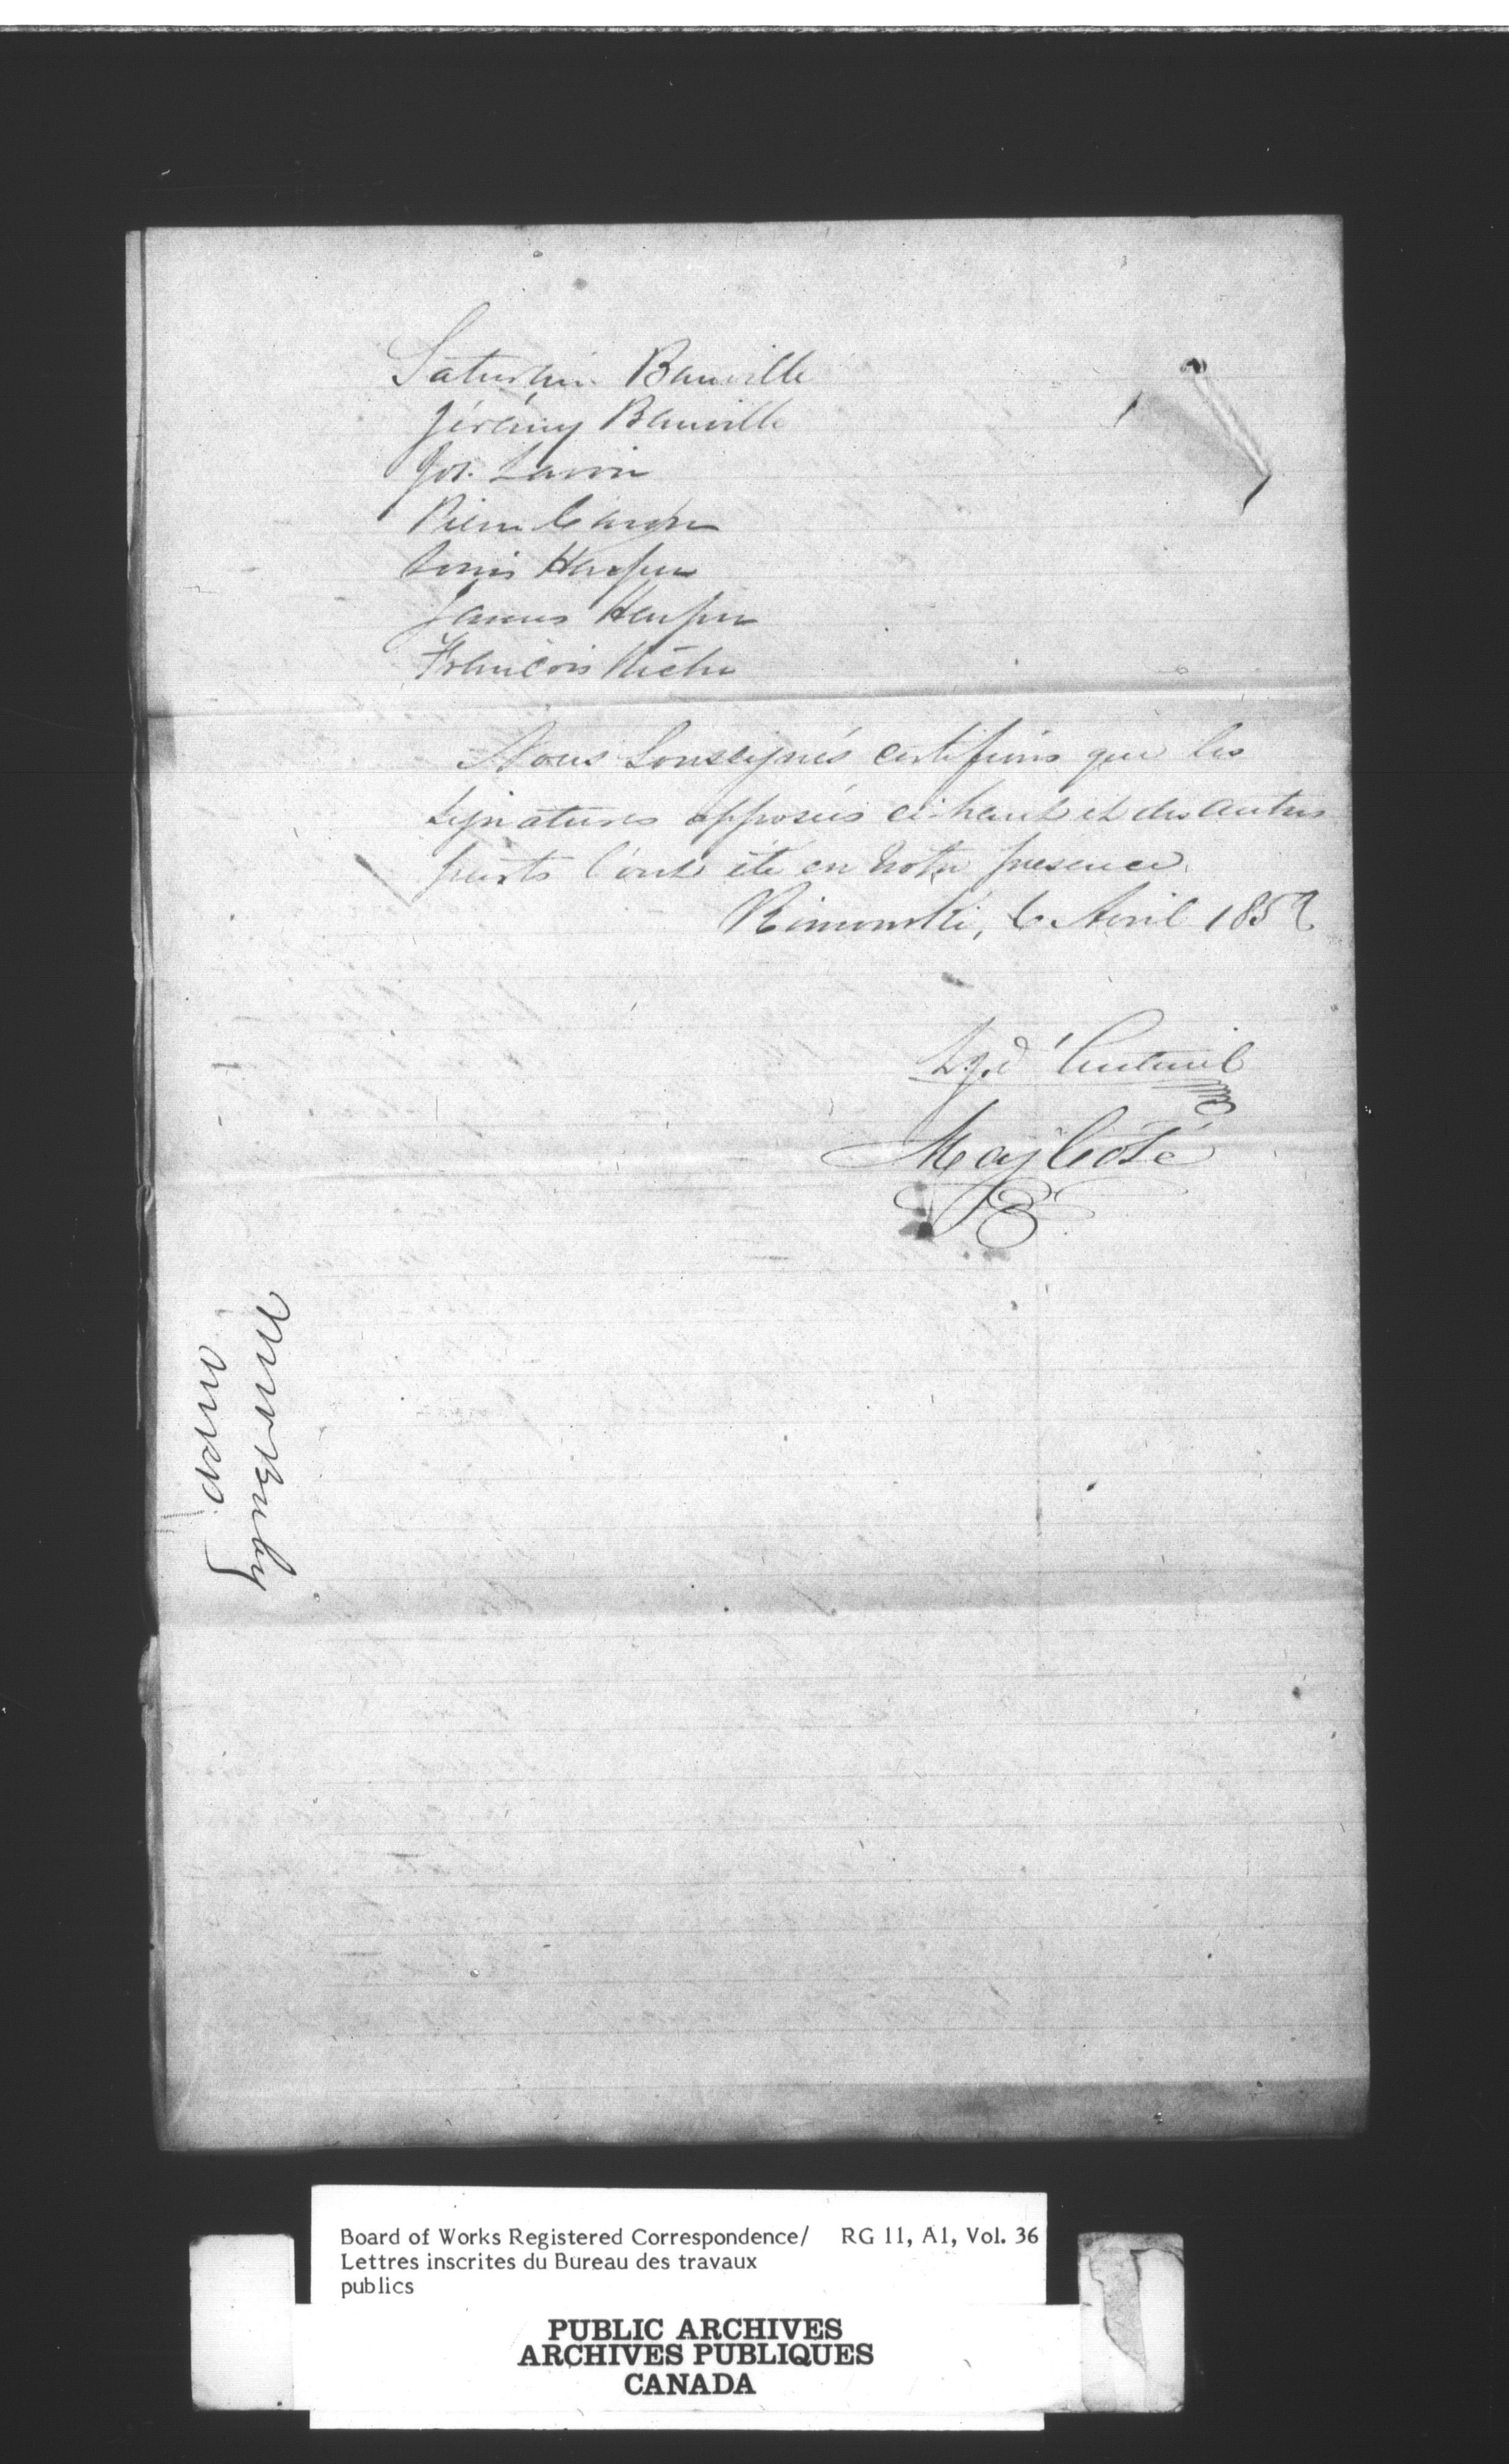 Saturnin Banville
Jérémy Banville
Jos. Lavoie
Pierre Caron
Louis Harper
James Harper
François Miche
Nous Soussignés certifions que les
signatures apposées ci-haut et des autres
parts l'ont été en notre presence.
Rimouski, 6 Avril 1859
Lyd
May Coté
Board of Works Registered Correspondence/ RG 11, A1, Vol. 36
Lettres inscrites du Bureau des travaux
publics
PUBLIC ARCHIVES
ARCHIVES PUBLIQUES
CANADA